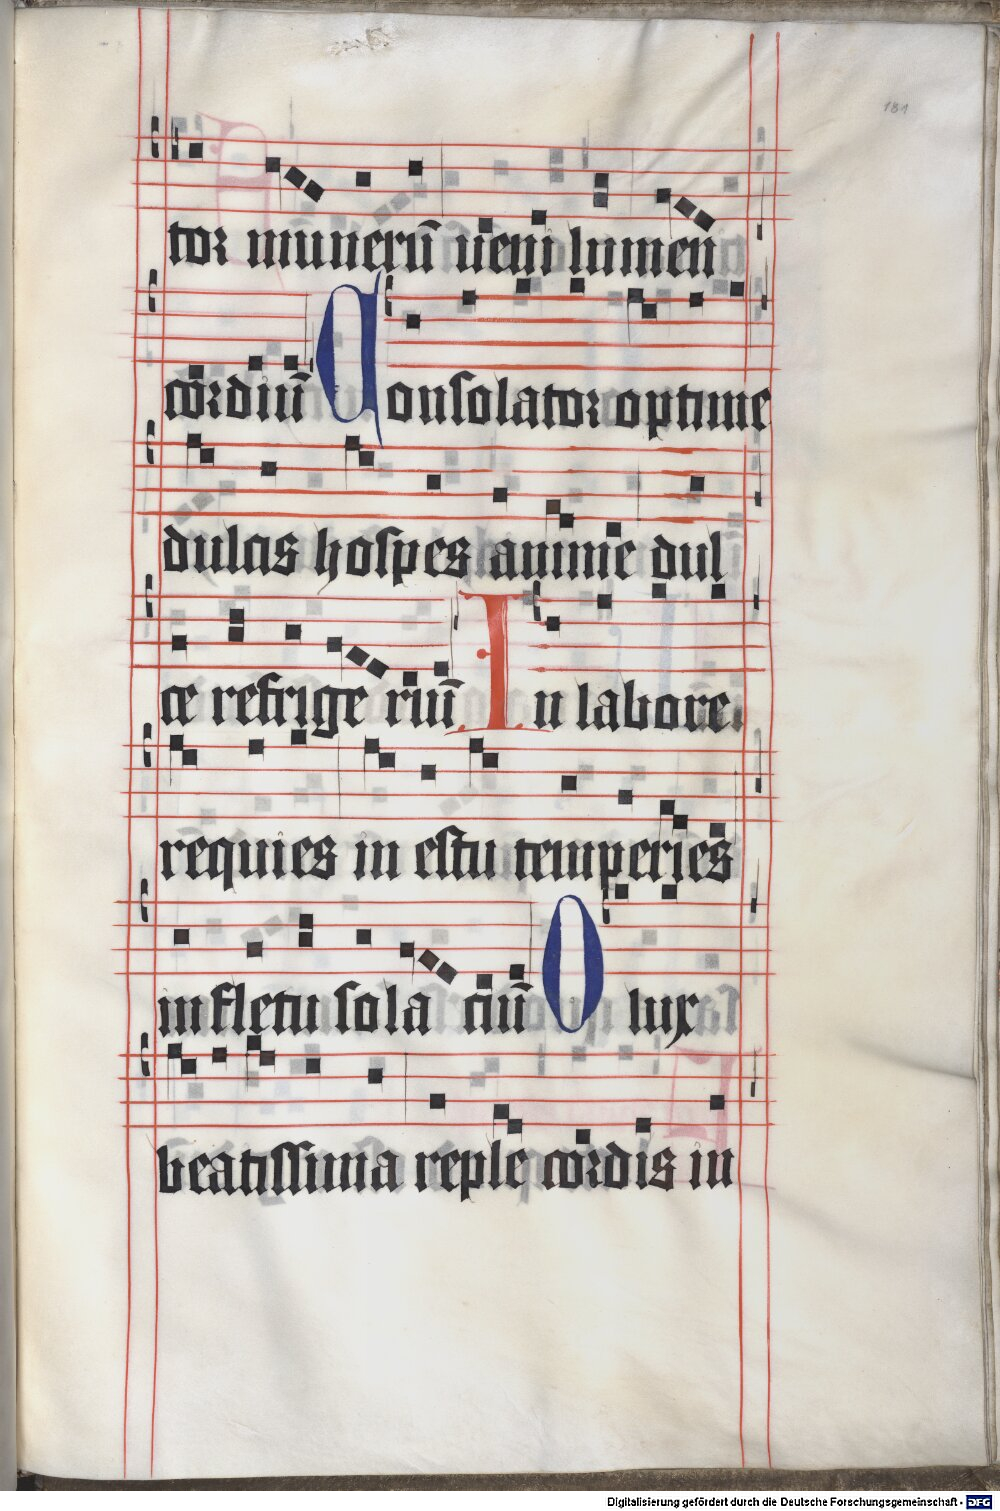 181
tor munerū ueni lumen
cordiū Consolator optime
dulcis hospes anime dul
ce refrige riū In labore
requies in estu temperies
in fletu sola ciū O lux
beatissima reple cordis in
Digitalisierung gefördert durch die Deutsche Forschungsgemeinschaft - DFG